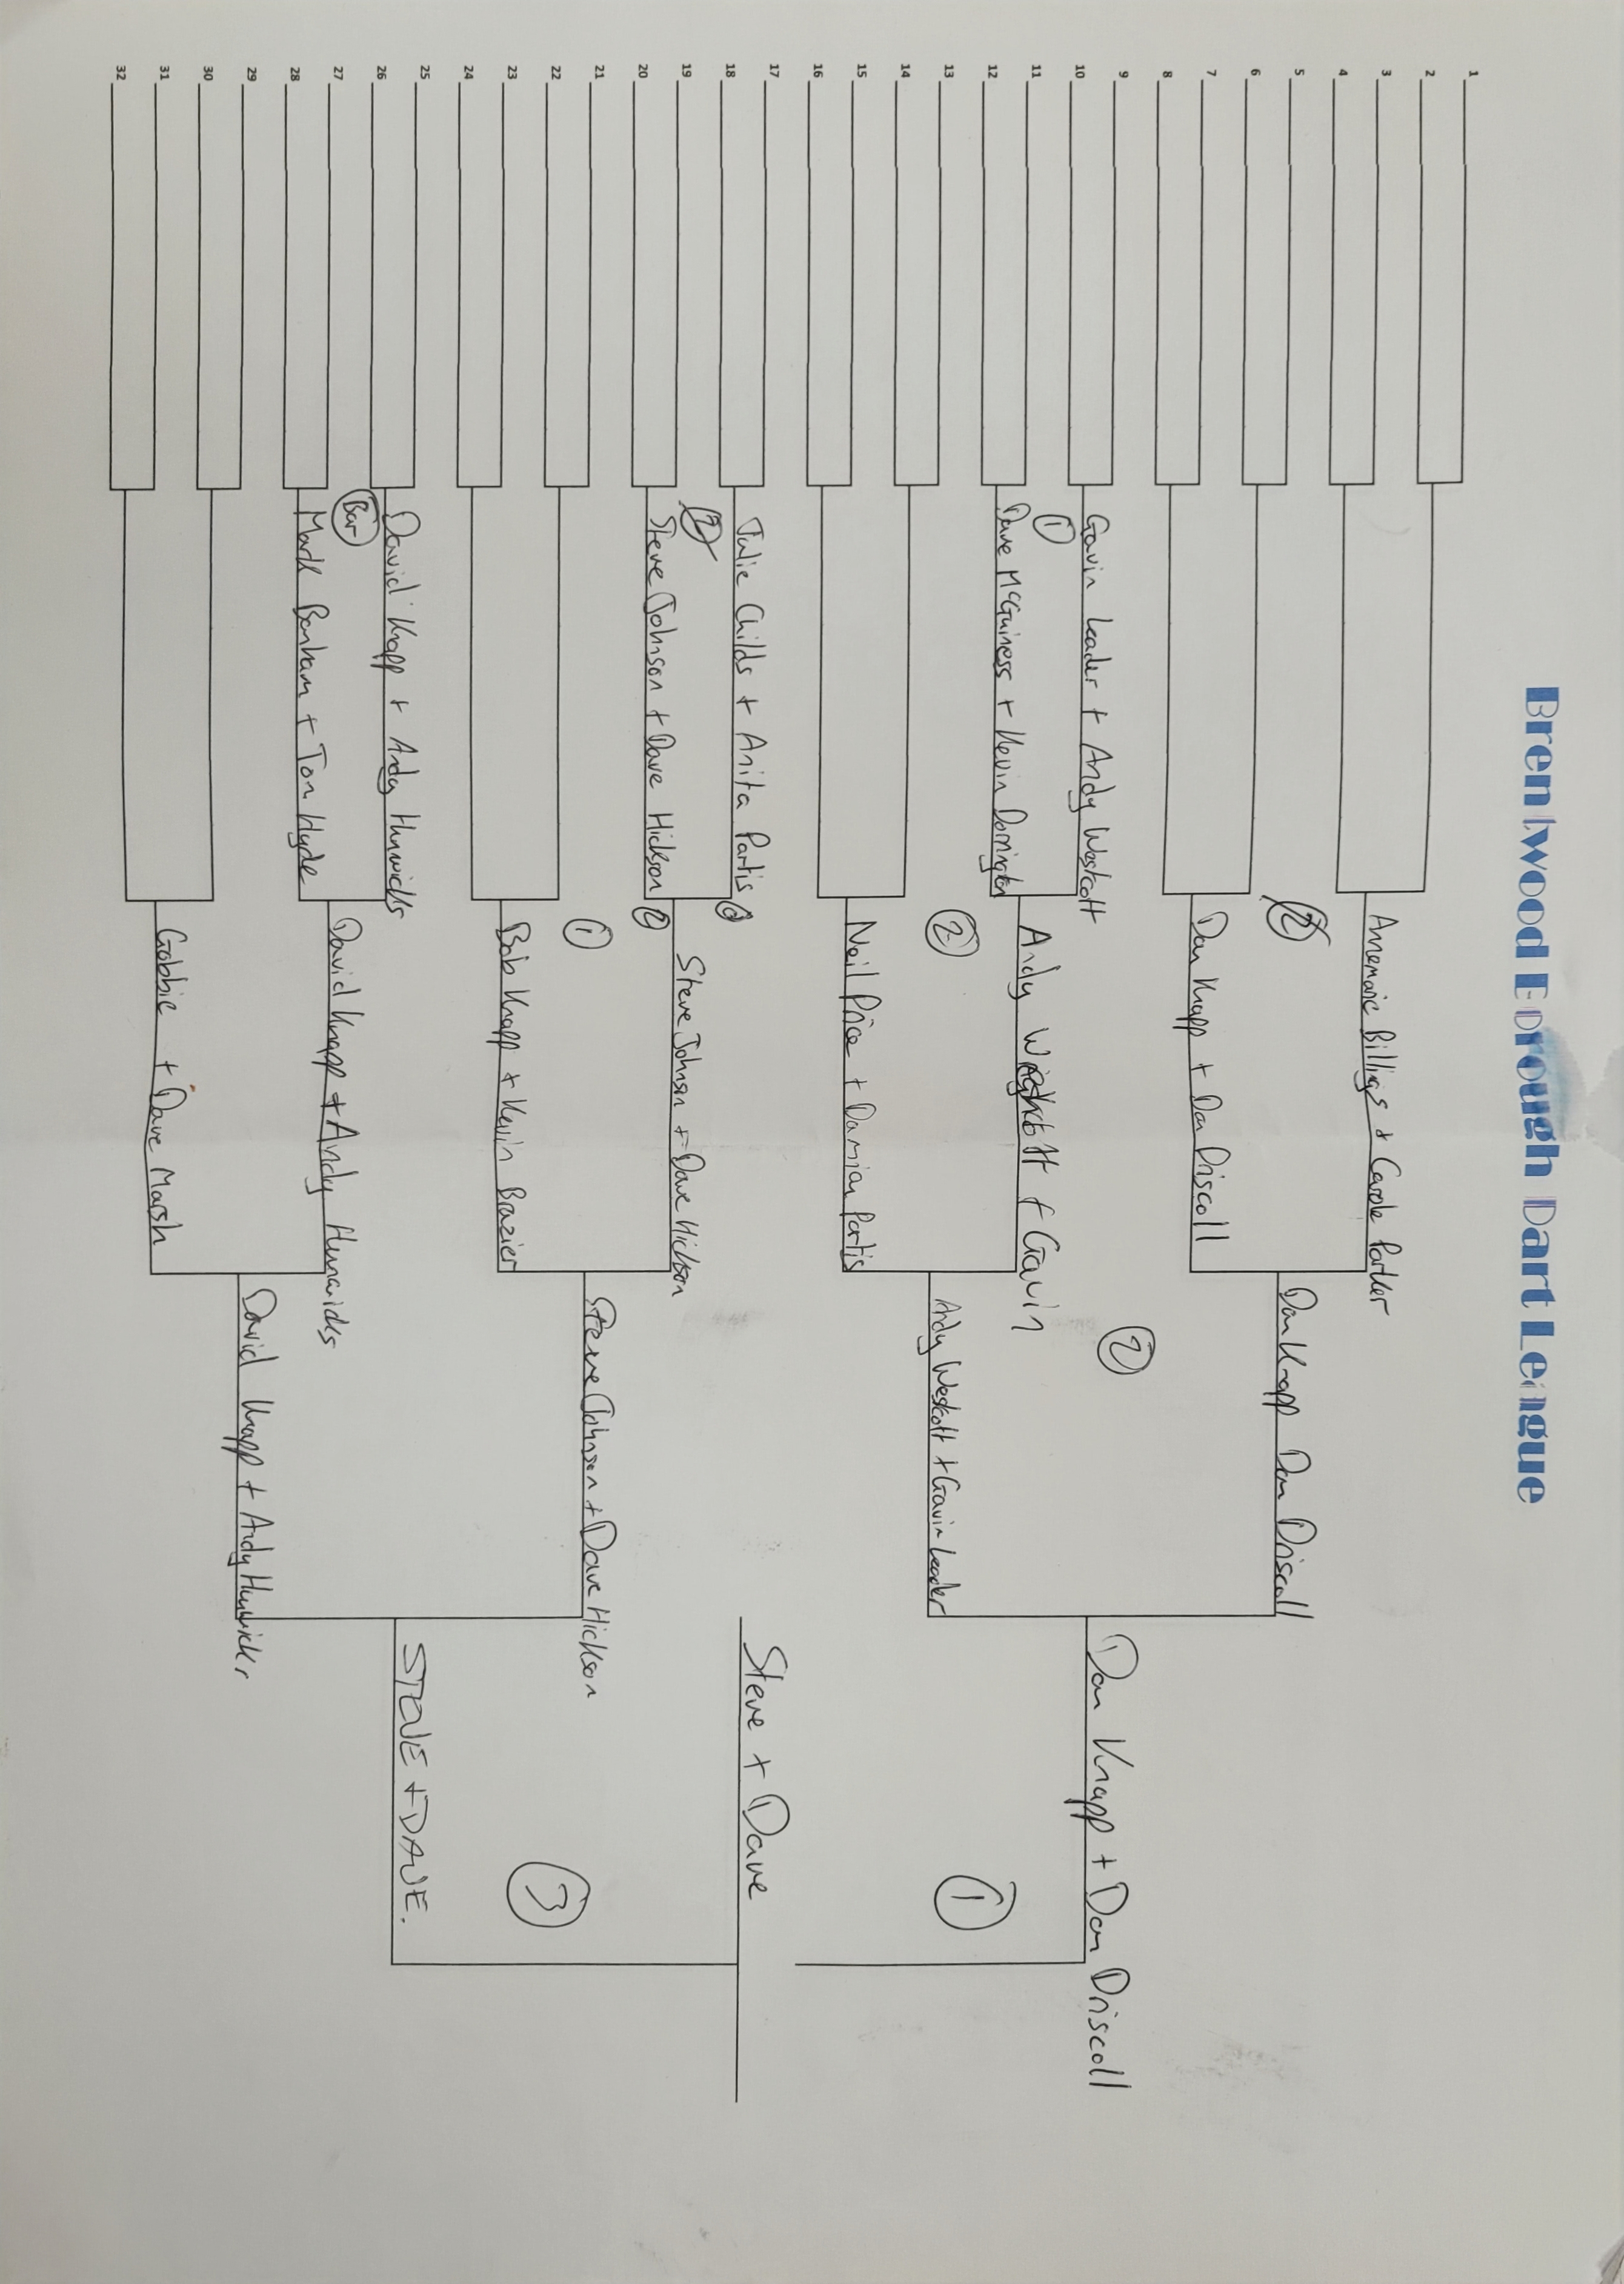 Brentwood Borough Dart League
1
2
3
4
5
6
7
8
9
10
11
12
13
14
15
16
17
18
19
20
21
22
23
24
25
26
27
28
29
30
31
32
Gavin Leader + Andy Westcott
1
Dave McGuiness + Kevin Dorrington
Julie Childs + Anita Partis
2
Steve Johnson + Dave Hickson
David Knapp + Andy Hunwicks
Bar
Mark Bonham + Tom Hyde
Annemarie Billings + Carole Parker
2
Dan Knapp + Dan Driscoll
Andy Westcott + Gavin
2
Neil Price + Damian Partis
2
Steve Johnson + Dave Hickson
1
Bob Knapp + Kevin Brazier
David Knapp + Andy Hunwicks
Gobbie + Dave Marsh
Dan Knapp Dan Driscoll
2
Andy Westcott + Gavin Leader
Steve Johnson + Dave Hickson
David Knapp + Andy Hunwicks
Dan Knapp + Dan Driscoll
1
Steve + Dave
3
STEVE + DAVE.